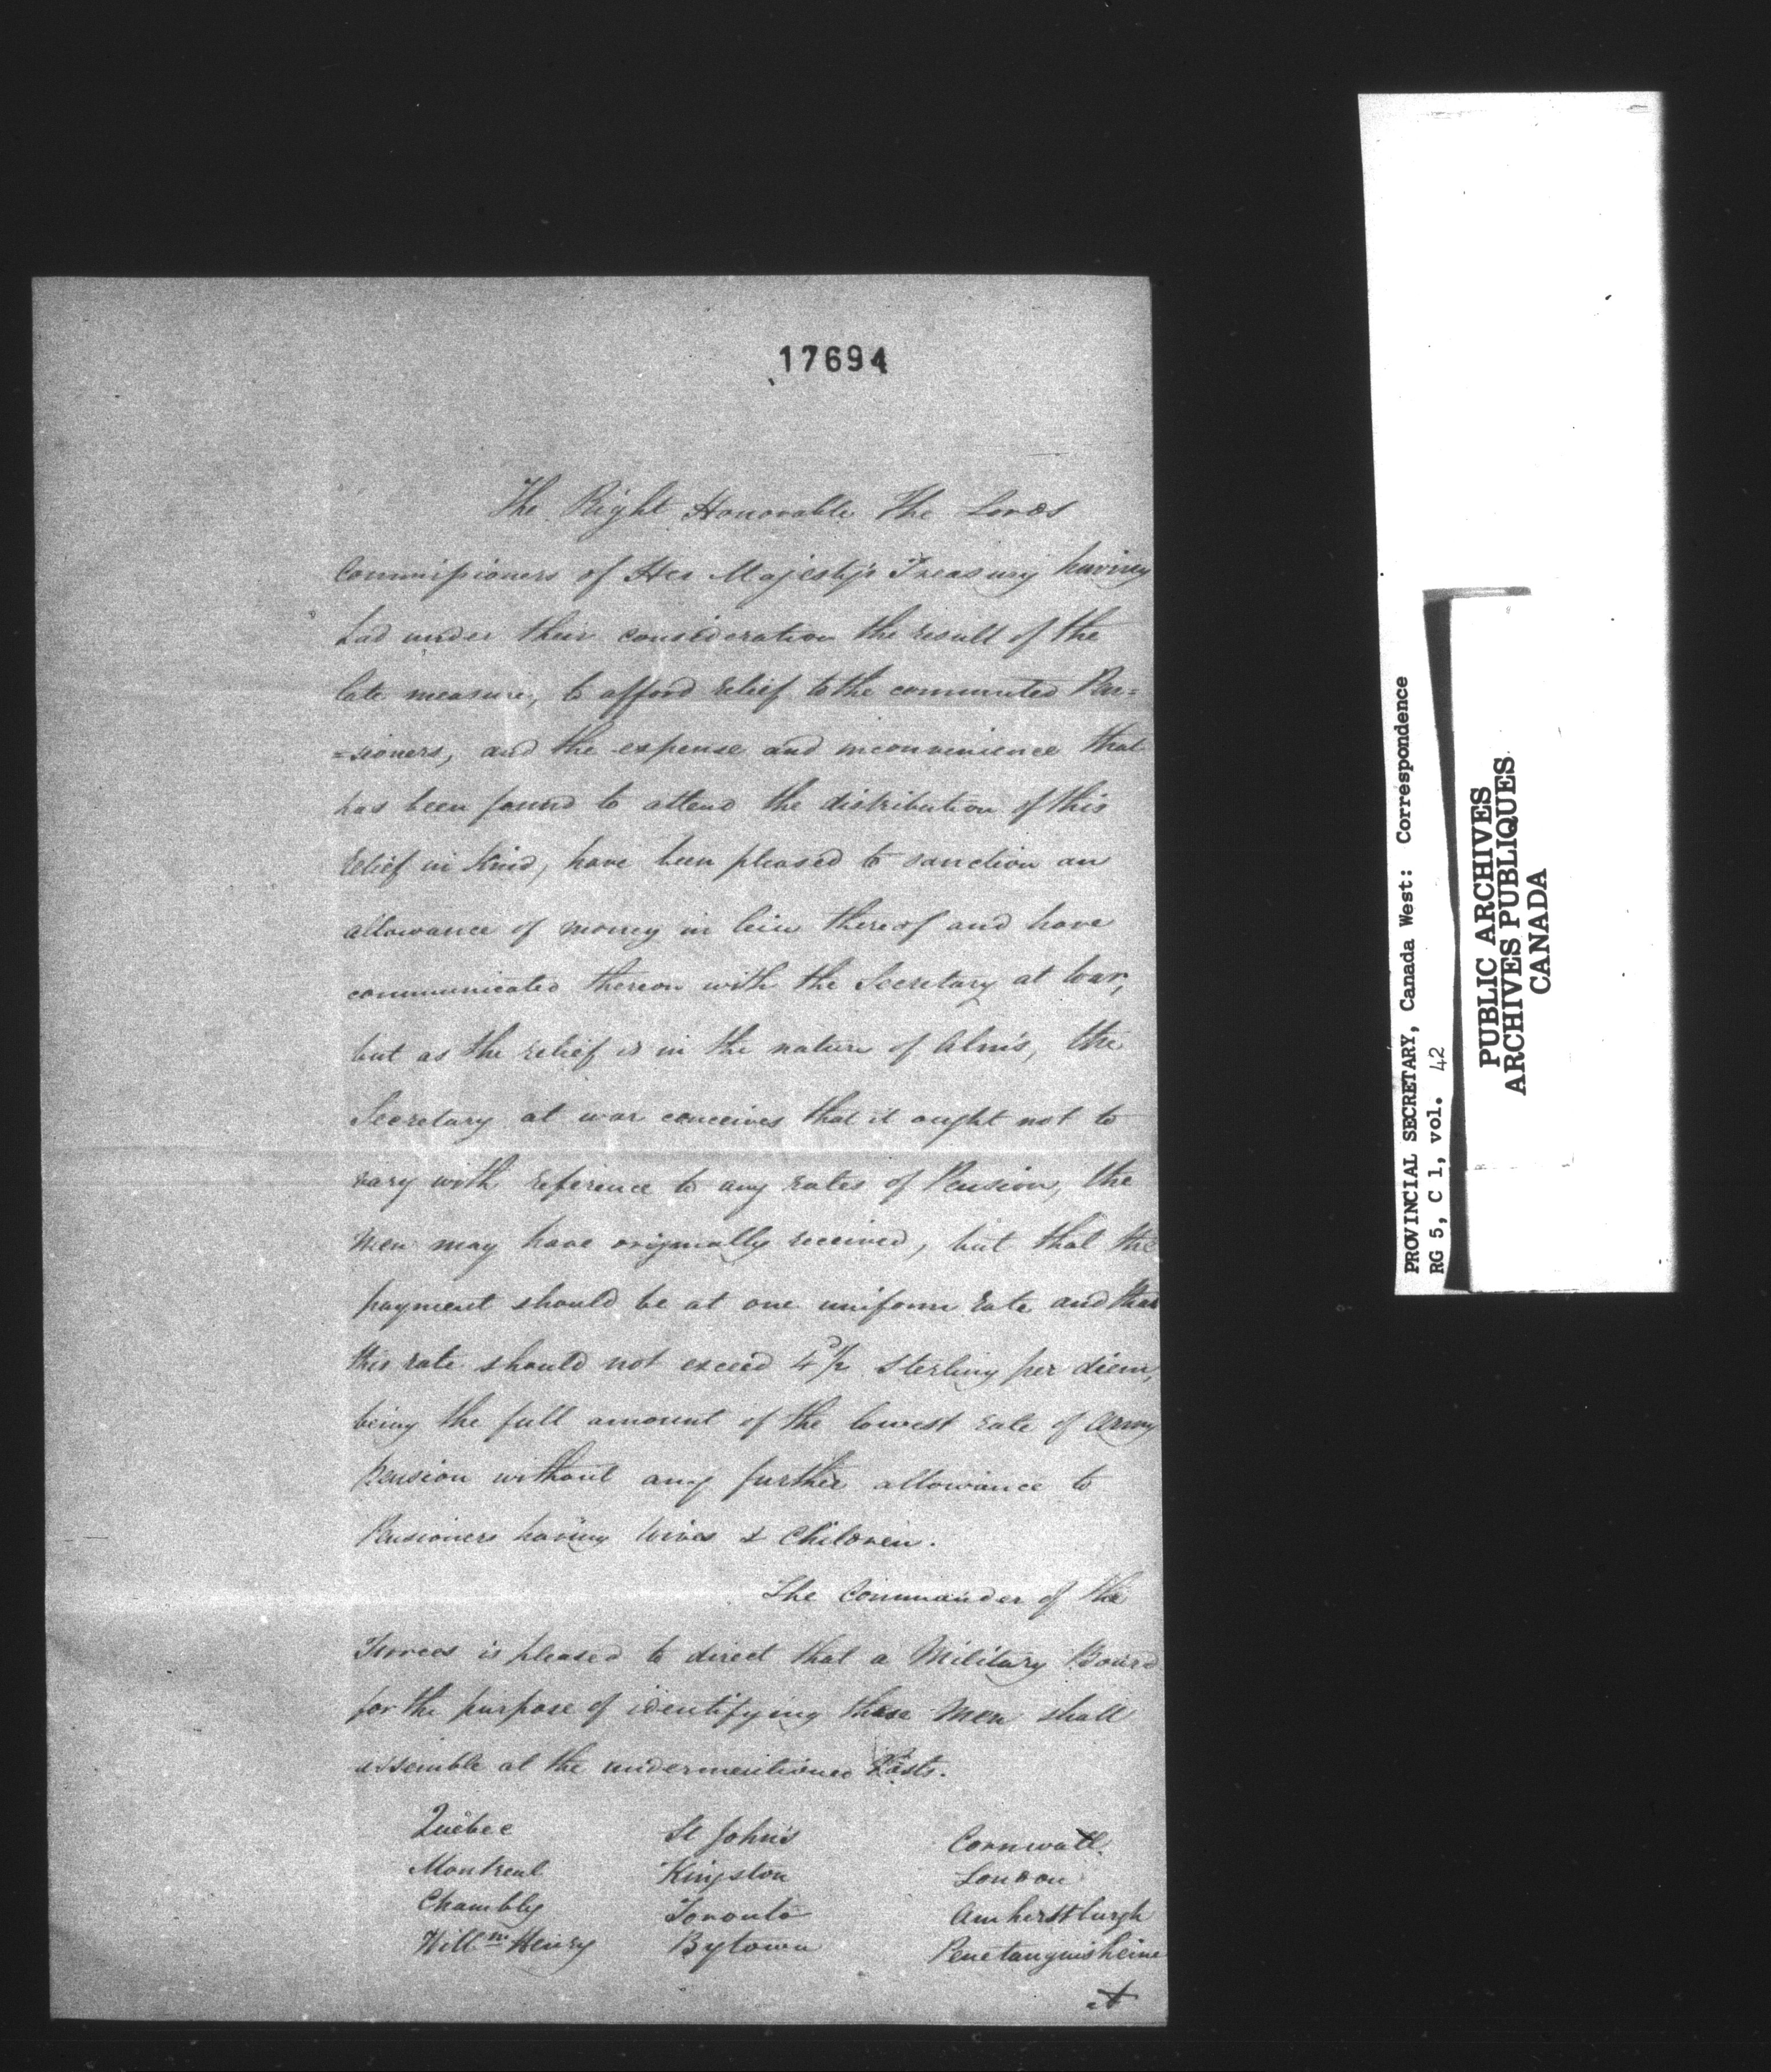 17694
The Right Honorable The Lords
Commissioners of Her Majesty's Treasury having
had under their consideration the result of the
late measure, to afford relief to the commuted Pen=
=sioners, and the expense and inconvenience that
has been found to attend the distribution of this
relief in kind, have been pleased to sanction an
allowance of money in lieu thereof and have
communicated thereon with the Secretary at War,
but as the relief is in the nature of Alms, the
Secretary at war conceives that it ought not to
vary with reference to any rates of Pension, the
Men may have originally received, but that the
payment should be at one uniform rate and that
this rate should not exceed 4d½ Sterling per diem,
being the full amount of the lowest rate of Army
Pension without any further allowance to
Pensioners having Wives & Children.
The Commander of the
Forces is pleased to direct that a Military Board
for the purpose of identifying these Men shall
assemble at the undermentioned Posts.
Quebec St John's Cornwall.
Montreal Kingston London
Chambly Toronto Amherstburgh
Willm Henry Bytown Penetanguisheine
At
PROVINCIAL SECRETARY, Canada West: Correspondence
RG 5, C 1, vol. 42
PUBLIC ARCHIVES
ARCHIVES PUBLIQUES
CANADA